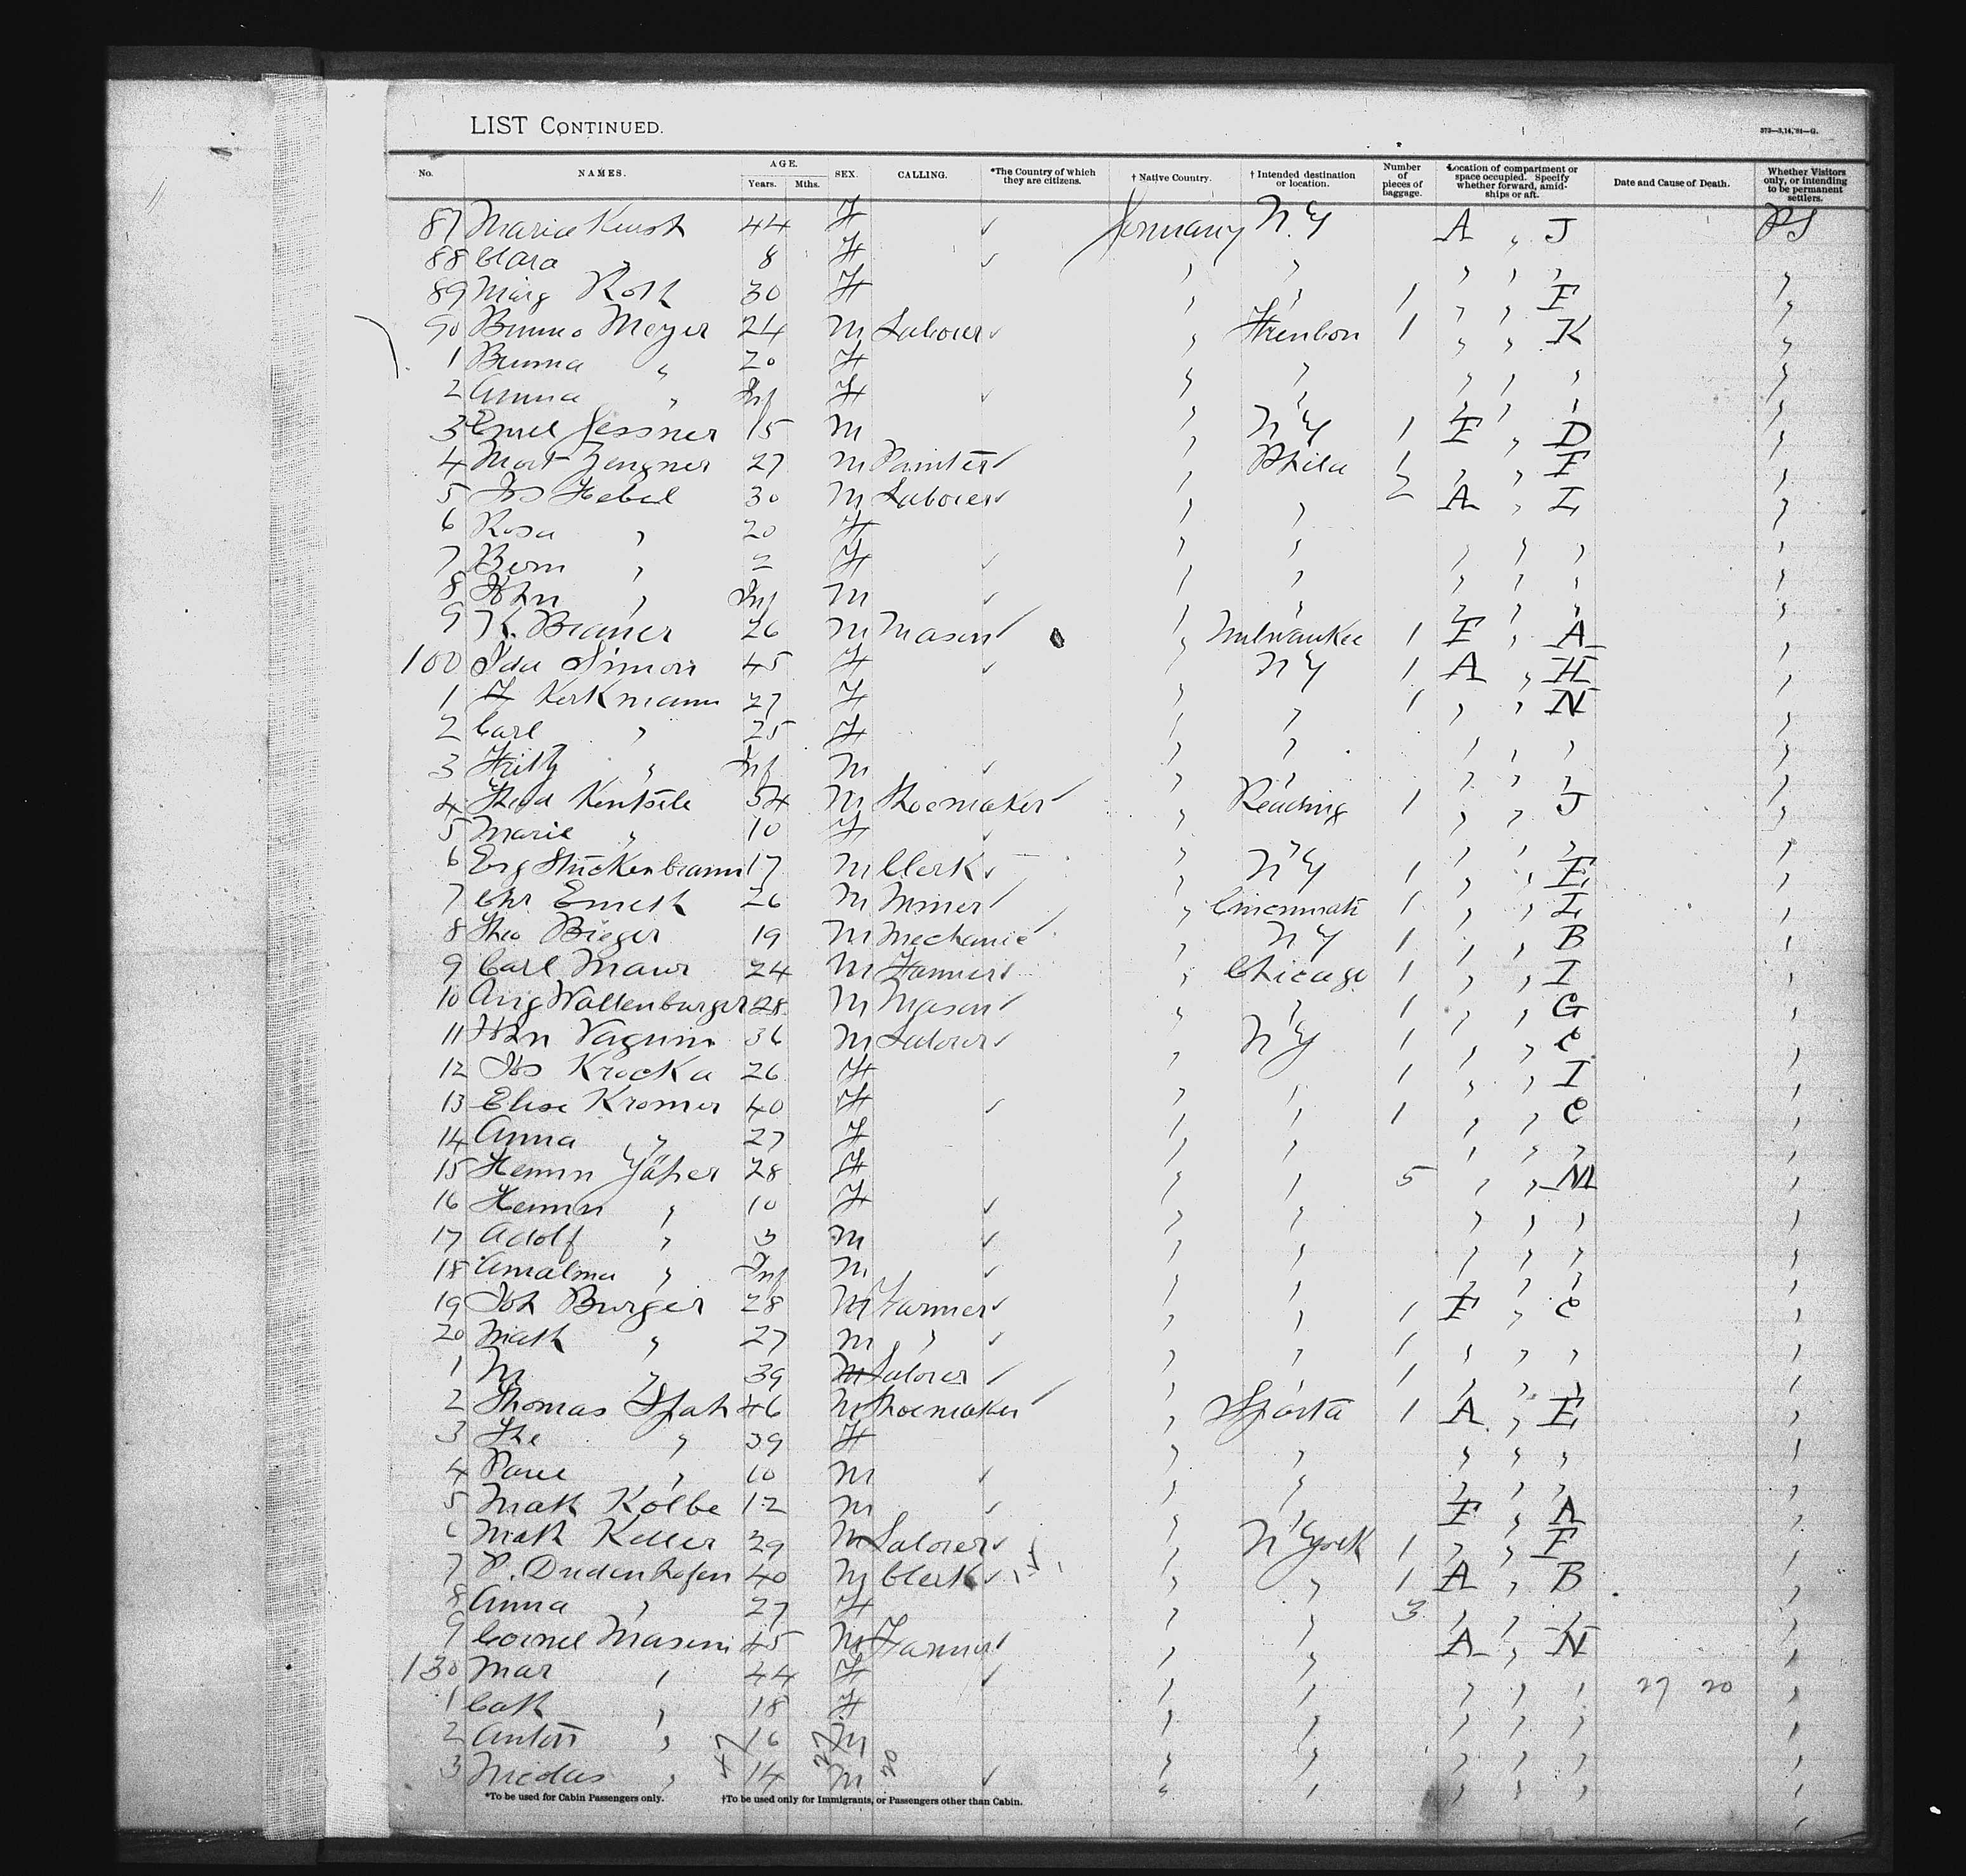 LIST CONTINUED.
373—3,14,'91—G.
No. NAMES. AGE. Years. Mths. SEX. CALLING. *The Country of which they are citizens. † Native Country. † Intended destination or location. Number of pieces of baggage. Location of compartment or space occupied. Specify whether forward, amid-ships or aft. Date and Cause of Death. Whether Visitors only, or intending to be permanent settlers.
87 Maria 44 F ✓ Germany N.Y A " J PS
88 Clara " 8 F ✓ " " " " " "
89 Marg Roth 30 F " " 1 " " F "
90 Meyer 24 M Labour ✓ " 1 " " K "
1 " 20 F " " " " " "
2 Anna " Inf F ✓ " " " " " "
3 15 M " N Y 1 F " D "
4 27 M Painter ✓ " Phila 1 " " F "
5 Jos Hebel 30 M Laborer ✓ " " 2 A " L "
6 Rosa " 20 F " " " " " "
7 Bern " 2 F ✓ " " " " " "
8 John " Inf M ✓ " " " " " "
9 K. 26 M Mason ✓ " Milwaukee 1 F " A "
100 Ida Simon 45 F ✓ " N Y 1 A " H "
1 F Kerkmann 27 F " " 1 " " N "
2 Carl " 25 F " " " " " "
3 Fritz " Inf M ✓ " " " " " "
4 54 M Shoemaker ✓ " Reading 1 " " J "
5 Marie " 10 F ✓ " " " " " "
6 17 M Clerk ✓ " N Y 1 " " E "
7 Chr 26 M Miner ✓ " Cincinnati 1 " " L "
8 Theo Bieger 19 M Mechanic ✓ " N Y 1 " " B "
9 Carl Maur 24 M Farmer ✓ " Chicago 1 " " I "
10 Aug Wallenburger 28 M Mason ✓ " " 1 " " G "
11 36 M Laborer ✓ " N Y 1 " " C "
12 Jos Krocka 26 F " " 1 " " I "
13 Elise Kromer 40 F ✓ " " 1 " " C "
14 Anna " 27 F " " " " " "
15 28 F " " 5 " " M "
16 " 10 F ✓ " " " " " "
17 Adolf " 3 M ✓ " " " " " "
18 " Inf M ✓ " " " " " "
19 Joh Burger 28 M Farmer ✓ " " 1 F " C "
20 Math " 27 M " ✓ " " 1 " " " "
1 M " 39 M Laborer ✓ " " 1 " " " "
2 Thomas Spah 46 M Shoemaker ✓ " Sparta 1 A " E "
3 The " 39 F " " " " " "
4 " 10 M ✓ " " " " " "
5 Math Kolbe 12 M ✓ " " F " A "
6 Math Keller 29 M Laborer ✓ " N York 1 " " F "
7 P. Dudenhofen 40 M Clerk ✓ " " 1 A " B "
8 Anna " 27 F " " 3 " " " "
9 Masim 45 M Farmer ✓ " " A " N "
130 Mar " 44 F ✓ " " " " " 27 20 "
1 Cath " 18 F " " " " " "
2 Anton " 16 M " " " " " "
3 Nicolas " 14 M ✓ " " " " " "
47 27 20
*To be used for Cabin Passengers only. †To be used only for Immigrants, or Passengers other than Cabin.